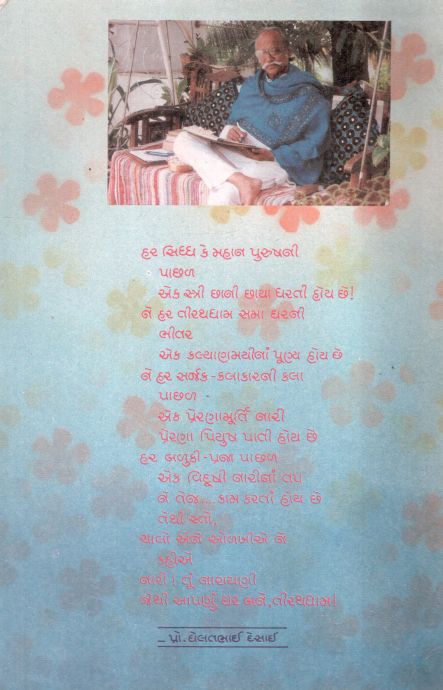 હર સિધ્ધ કે મહાન પુરુષની
પાછળ
એક સ્ત્રી છાની છાયા ધરતી હોય છે!
ને હર તીરથધામ સમા ઘરની
ભીતર
એક કલ્યાણમયીનાં પૂણ્ય હોય છે
ને હર સર્જક-કલાકારની કલા
પાછળ
એક પ્રેરણામૂર્તિ નારી
પ્રેરણા પિયુષ પાતી હોય છે
હર બળુકી-પ્રજા પાછળ
એક વિદૂષી નારીનાં તપ
ને તેજ....કામ કરતાં હોય છે
તેથી સ્તો,
ચાલો એને ઓળખીએ ને
કહીએ
નારી! તું નારાયણી
જેથી આપણું ઘર બને, તીરથધામ!
– પ્રો. ઘેલતભાઈ દેસાઈ